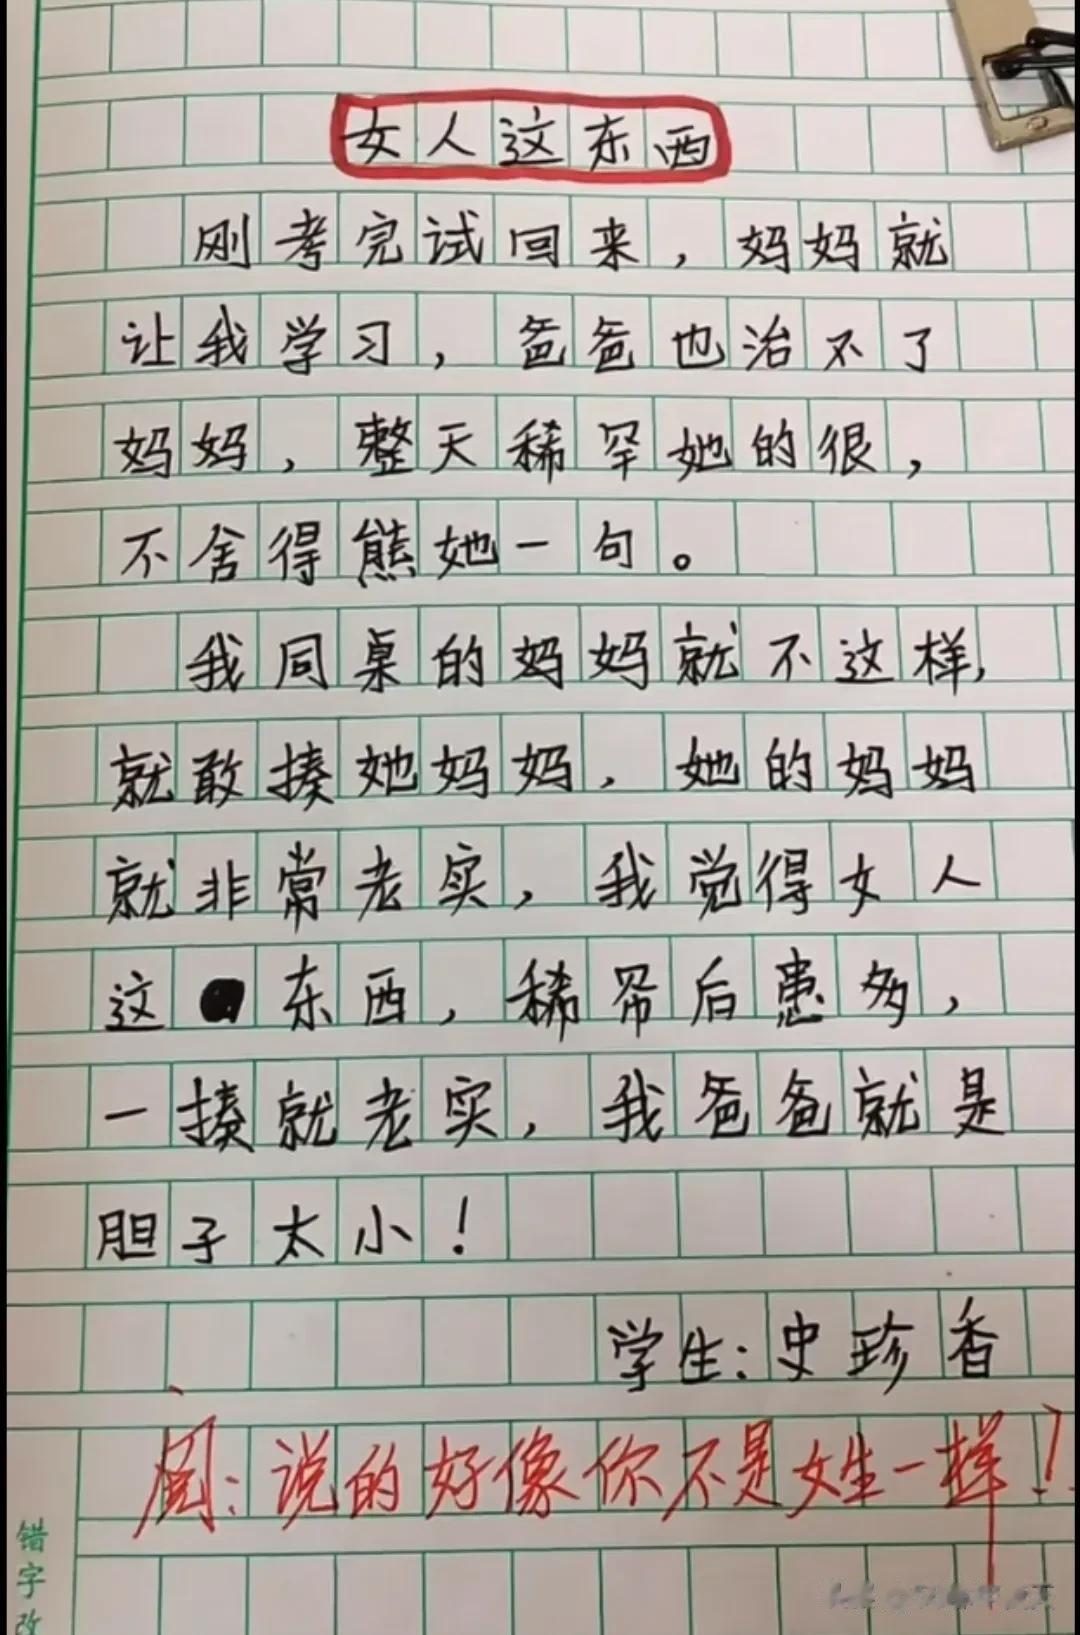 女人这东西
刚考完试回来，妈妈就
让我学习，爸爸也治不了
妈妈，整天稀罕她的很，
不舍得熊她一句。
我同桌的妈妈就不这样，
就敢揍她妈妈，她的妈妈
就非常老实，我觉得女人
这东西，稀帘后患多，
一揍就老实，我爸爸就是
胆子太小！
学生：史珍香
阅：说的好像你不是女生一样！
错字改